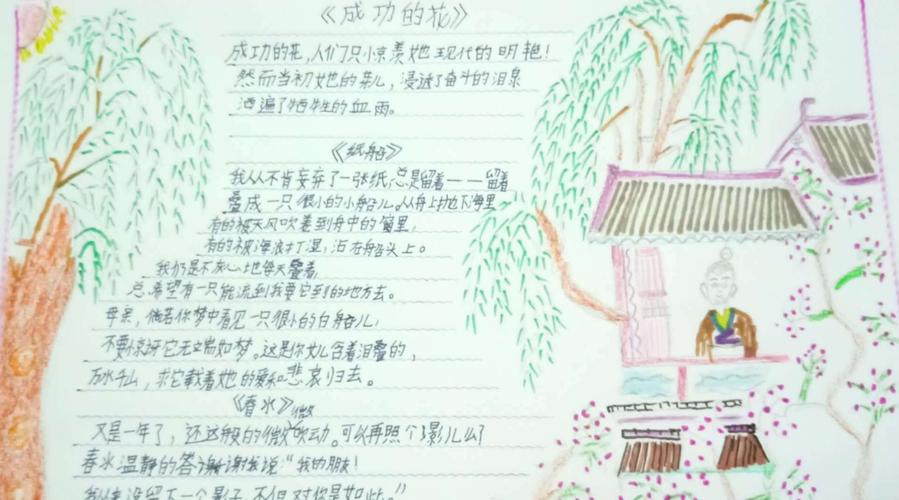 《成功的花》
成功的花,人们只惊羡她现代的明艳!
然而当初她的芽儿,浸透了奋斗的泪泉
洒遍了牺牲的血雨。
《纸船》
我从不肯妄弃了一张纸总是留着——留着
叠成一只很小的小船儿。从舟上抛下海里
有的被天风吹卷到舟中的窗里,
有的被海浪打湿,沾在船头上。
我仍是不灰心地每天叠着,
总希望有一只能流到我要它到的地方去。
母亲,倘若你梦中看见一只很小的白船儿,
不要惊讶它无端如梦。这是你女儿含着泪叠的,
万水千山,求它载着她的爱和悲哀归去。
《春水》
又是一年了,还这般的微微吹动。可以再照个影儿么?
春水温静的答谢谢我说“我的朋友!
我从来没留下一个影子,不但对你是如此。”